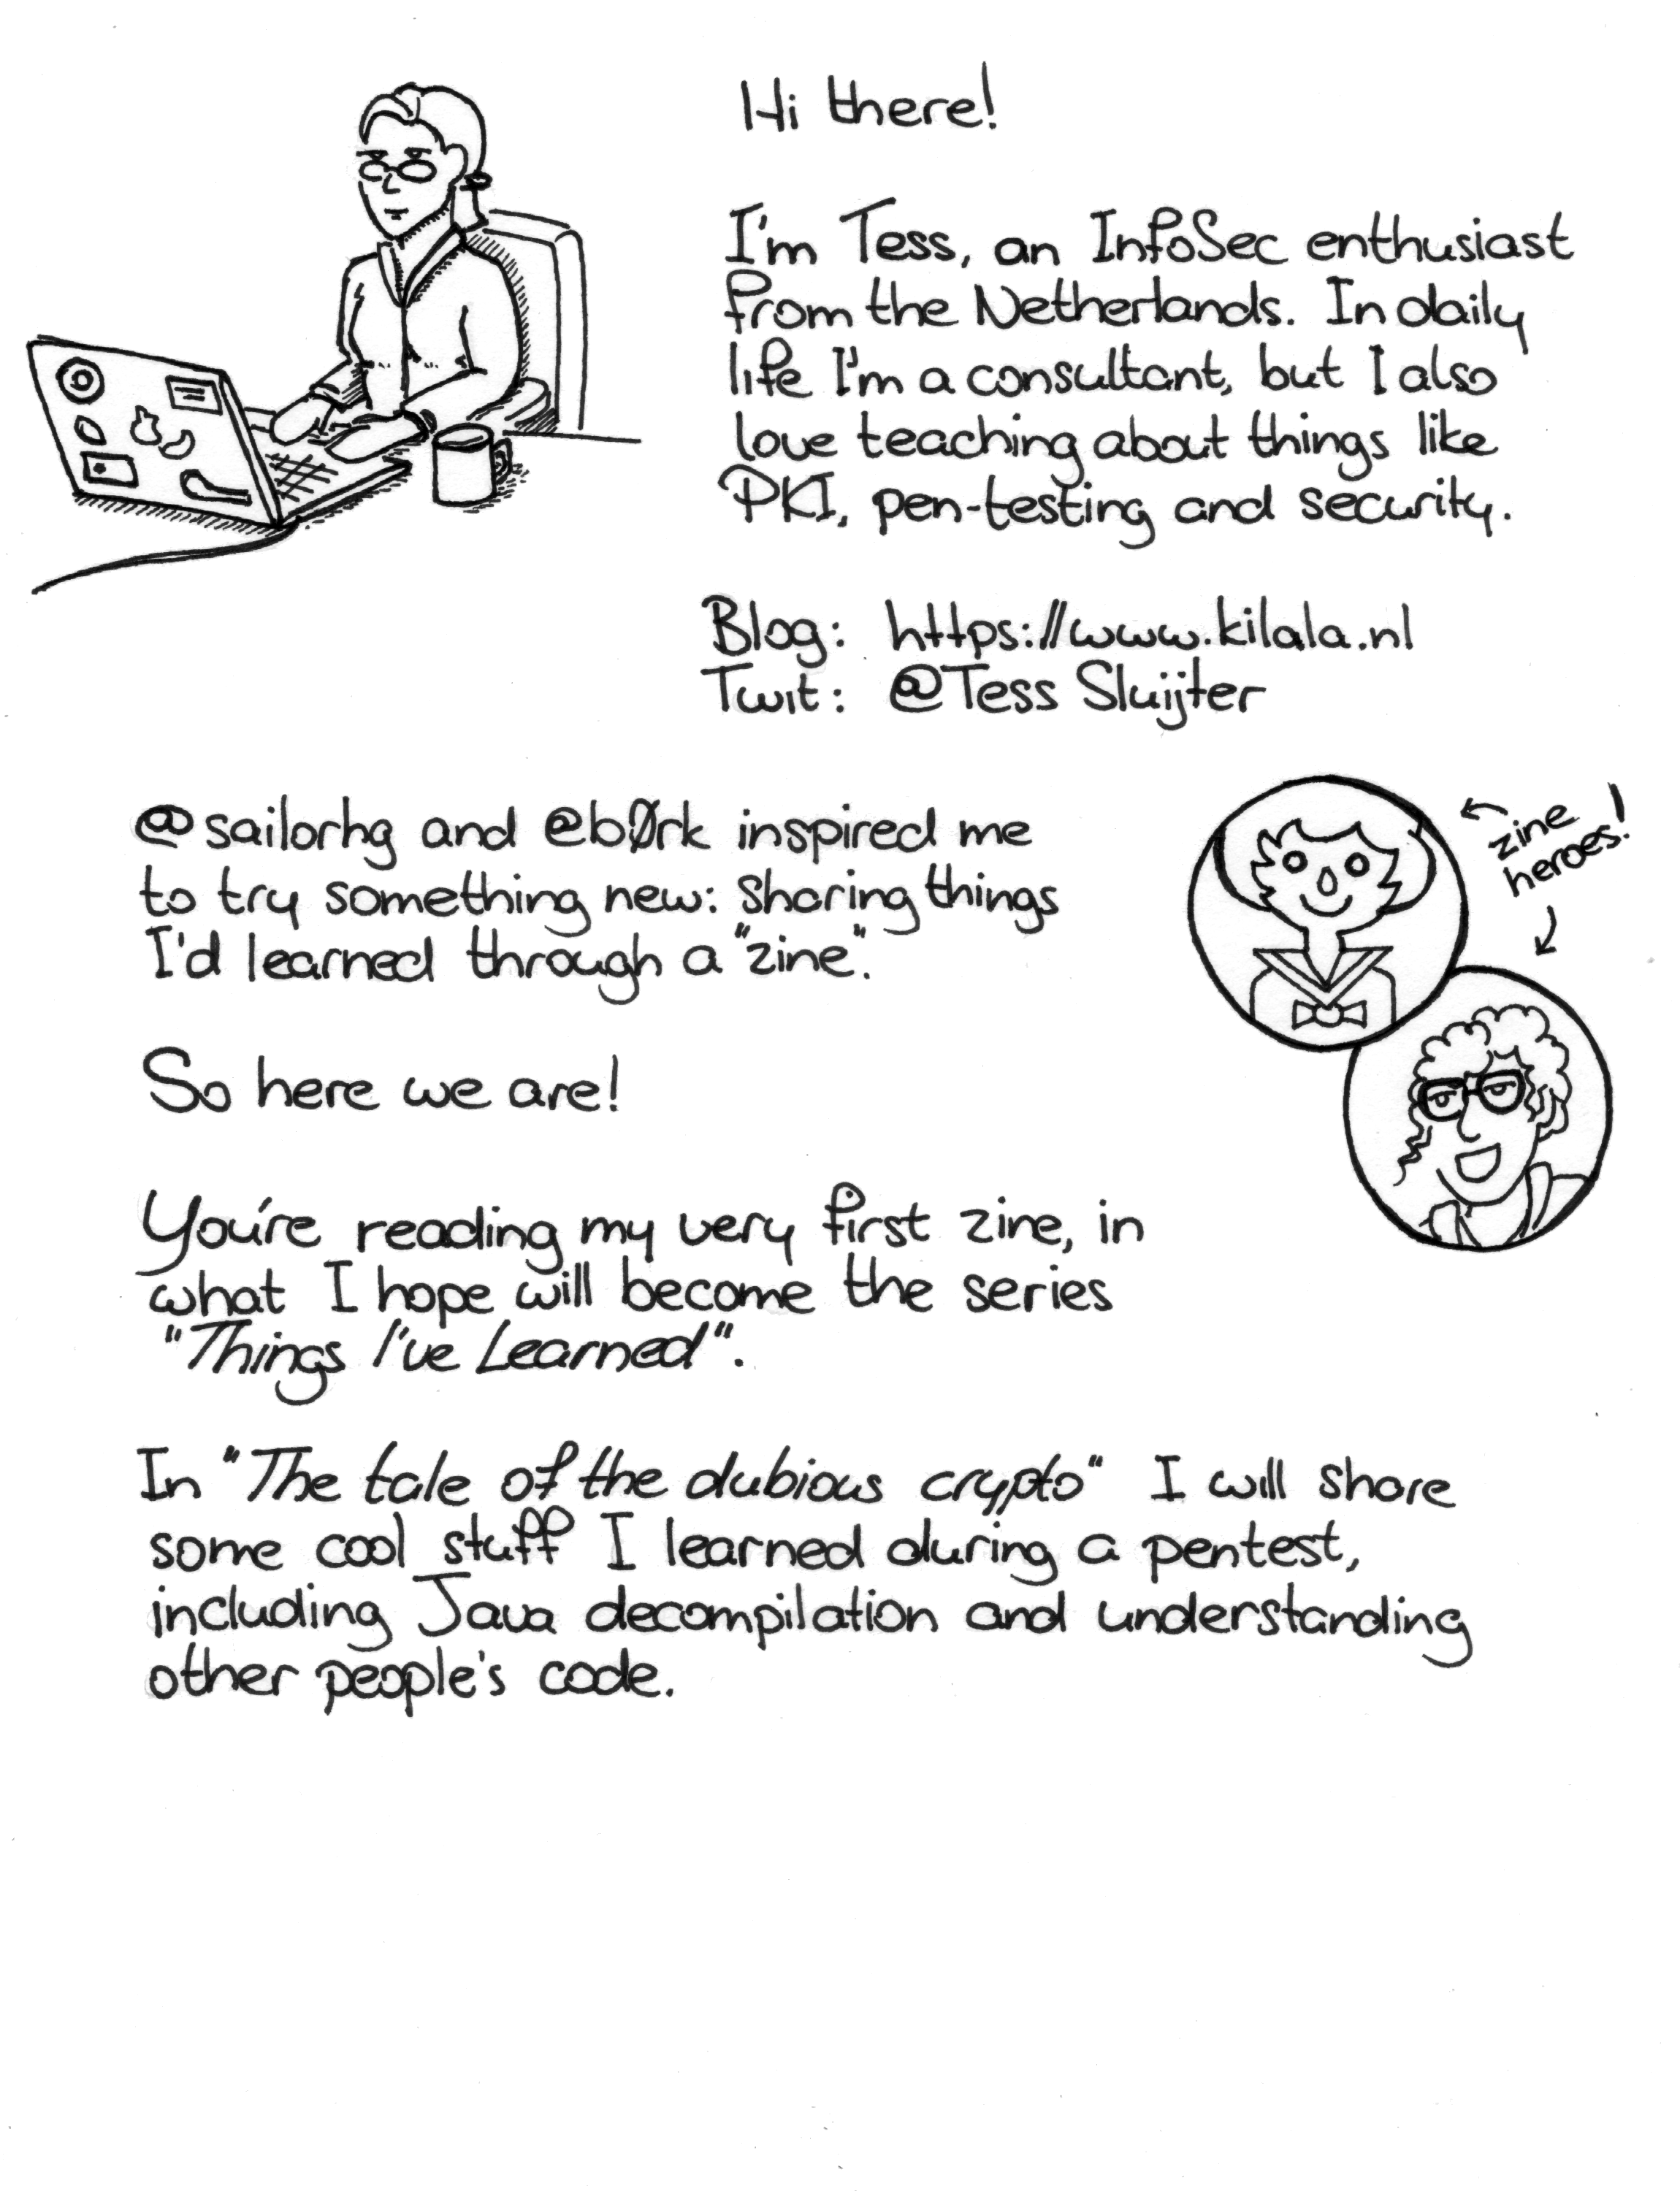 Hi there!
I'm Tess, an InfoSec enthusiast
from the Netherlands. In daily
life I'm a consultant, but I also
love teaching about things like
PKI, pen-testing and security.
Blog: https://www.kilala.nl
Twit: @Tess Sluijter
@sailorhg and @bØrk inspired me
to try something new: sharing things
I'd learned through a "zine".
zine
heroes!
So here we are!
You're reading my very first zine, in
what I hope will become the series
"Things I've Learned".
In "The tale of the dubious crypto" I will share
some cool stuff I learned during a pentest,
including Java decompilation and understanding
other people's code.